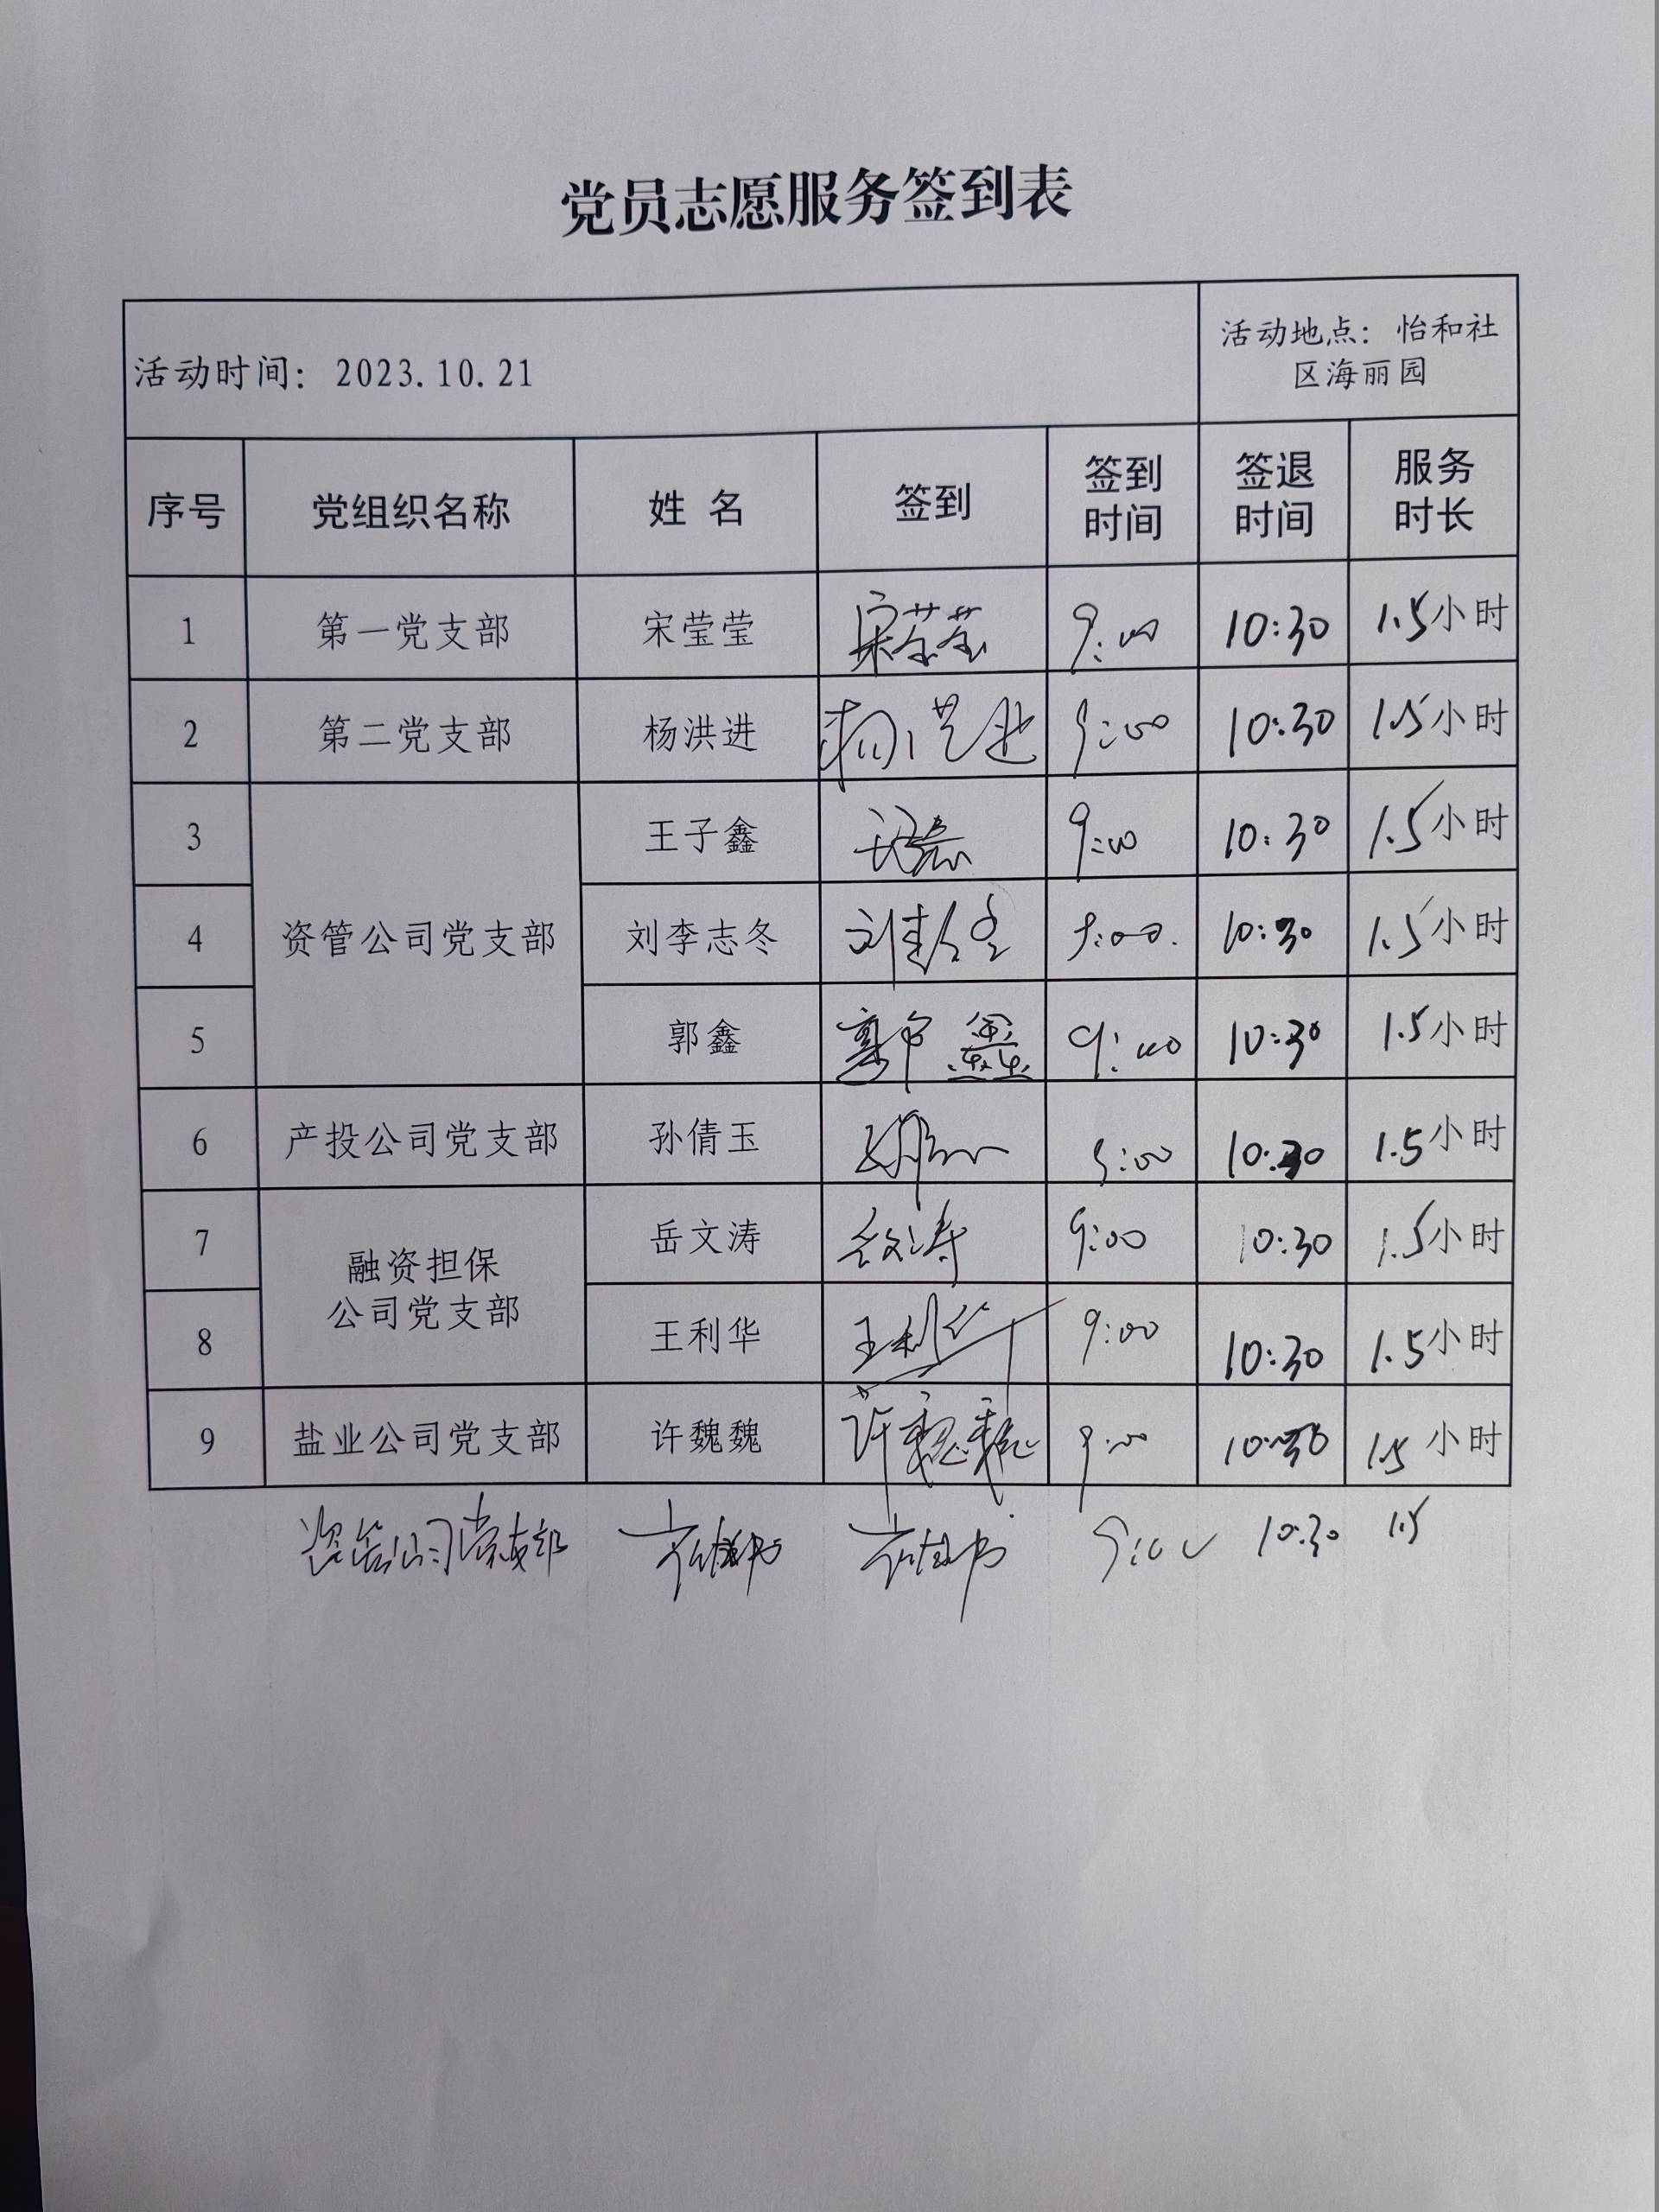 党员志愿服务签到表
活动时间：2023.10.21 活动地点：怡和社区海丽园
序号 党组织名称 姓名 签到 签到时间 签退时间 服务时长
1 第一党支部 宋莹莹 宋莹莹 9:00 10:30 1.5小时
2 第二党支部 杨洪进 杨洪进 9:00 10:30 1.5小时
3 资管公司党支部 王子鑫 9:00 10:30 1.5小时
4 刘李志冬 9:00. 10:30 1.5小时
5 郭鑫 郭鑫 9:00 10:30 1.5小时
6 产投公司党支部 孙倩玉 9:00 10:30 1.5小时
7 融资担保公司党支部 岳文涛 岳文涛 9:00 10:30 1.5小时
8 王利华 王利华 9:00 10:30 1.5小时
9 盐业公司党支部 许魏魏 许魏魏 9:00 10:30 1.5小时
资管公司党支部 9:00 10:30 1.5